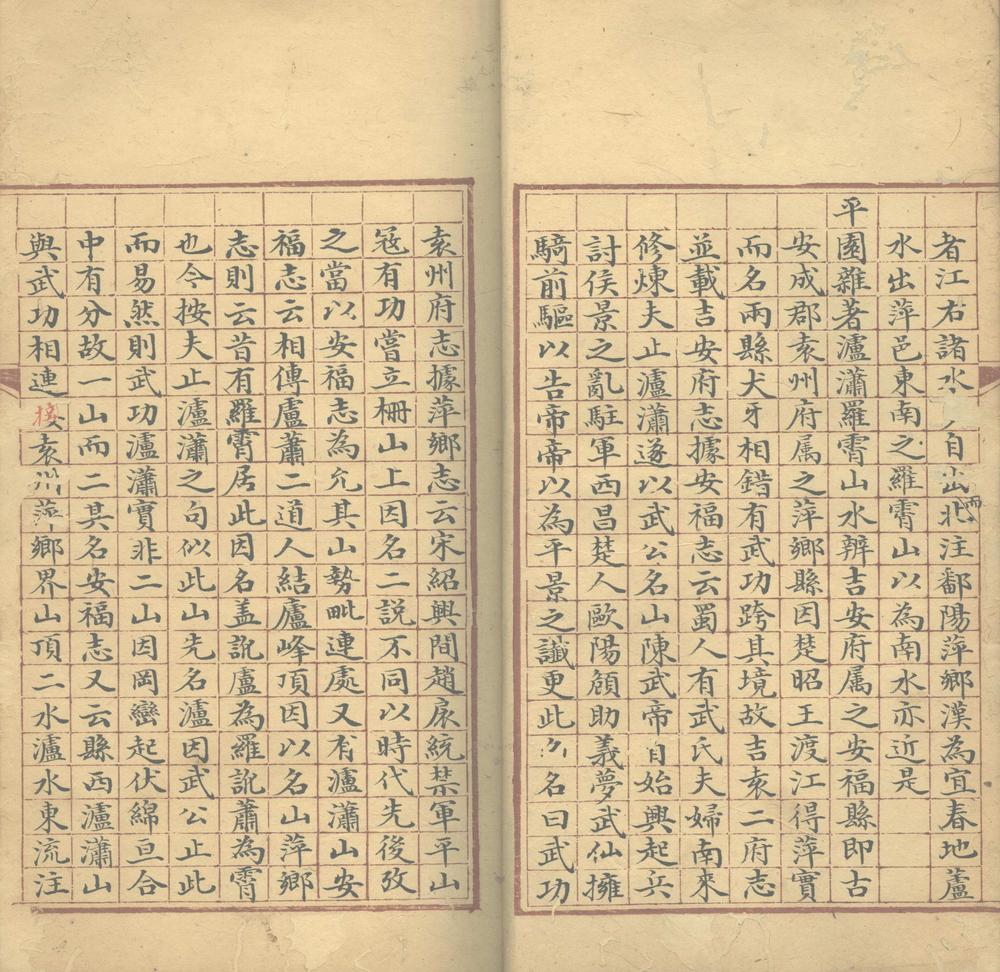 者江右諸水自出北而注鄱陽萍鄉漢為宜春地蘆
水出萍邑東南之羅霄山以為南水亦近是
平園雜著瀘瀟羅霄山水辨吉安府属之安福縣即古
安成郡袁州府属之萍鄉縣因楚昭王渡江得萍實
而名兩縣犬牙相錯有武功跨其境故吉袁二府志
並載吉安府志據安福志云蜀人有武氏夫婦南來
修煉夫止瀘瀟遂以武公名山陳武帝自始興起兵
討侯景之亂駐軍西昌楚人歐陽頠助義夢武仙擁
騎前驅以告帝帝以為平景之讖更此名曰武功
袁州府志據萍鄉志云宋紹興間趙扆統禁軍平山
冦有功嘗立柵山上因名二説不同以時代先後攷
之當以安福志為允其山勢毗連處又有瀘瀟山安
福志云相傳盧蕭二道人結廬峰頂因以名山萍鄉
志則云昔有羅霄居此因名盖訛盧為羅訛蕭為霄
也今按夫止瀘瀟之句似此山先名瀘因武公止此
而易然則武功瀘瀟實非二山因岡巒起伏綿亘合
中有分故一山而二其名安福志又云縣西瀘瀟山
與武功相連接袁州萍鄉界山頂二水瀘水東流注